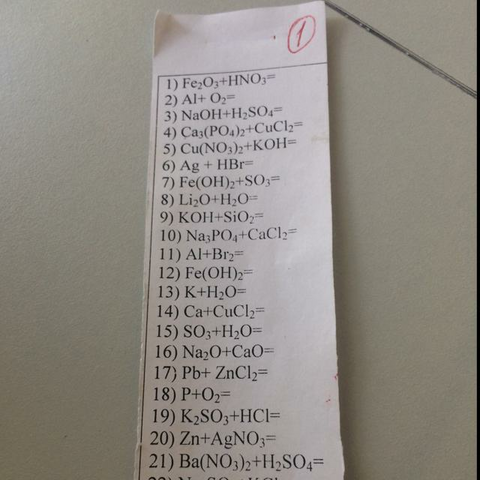 1
1) Fe₂O₃+HNO₃=
2) Al+ O₂=
3) NaOH+H₂SO₄=
4) Ca₃(PO₄)₂+CuCl₂=
5) Cu(NO₃)₂+KOH=
6) Ag + HBr=
7) Fe(OH)₂+SO₃=
8) Li₂O+H₂O=
9) KOH+SiO₂=
10) Na₃PO₄+CaCl₂=
11) Al+Br₂=
12) Fe(OH)₂=
13) K+H₂O=
14) Ca+CuCl₂=
15) SO₃+H₂O=
16) Na₂O+CaO=
17) Pb+ ZnCl₂=
18) P+O₂=
19) K₂SO₃+HCl=
20) Zn+AgNO₃=
21) Ba(NO₃)₂+H₂SO₄=